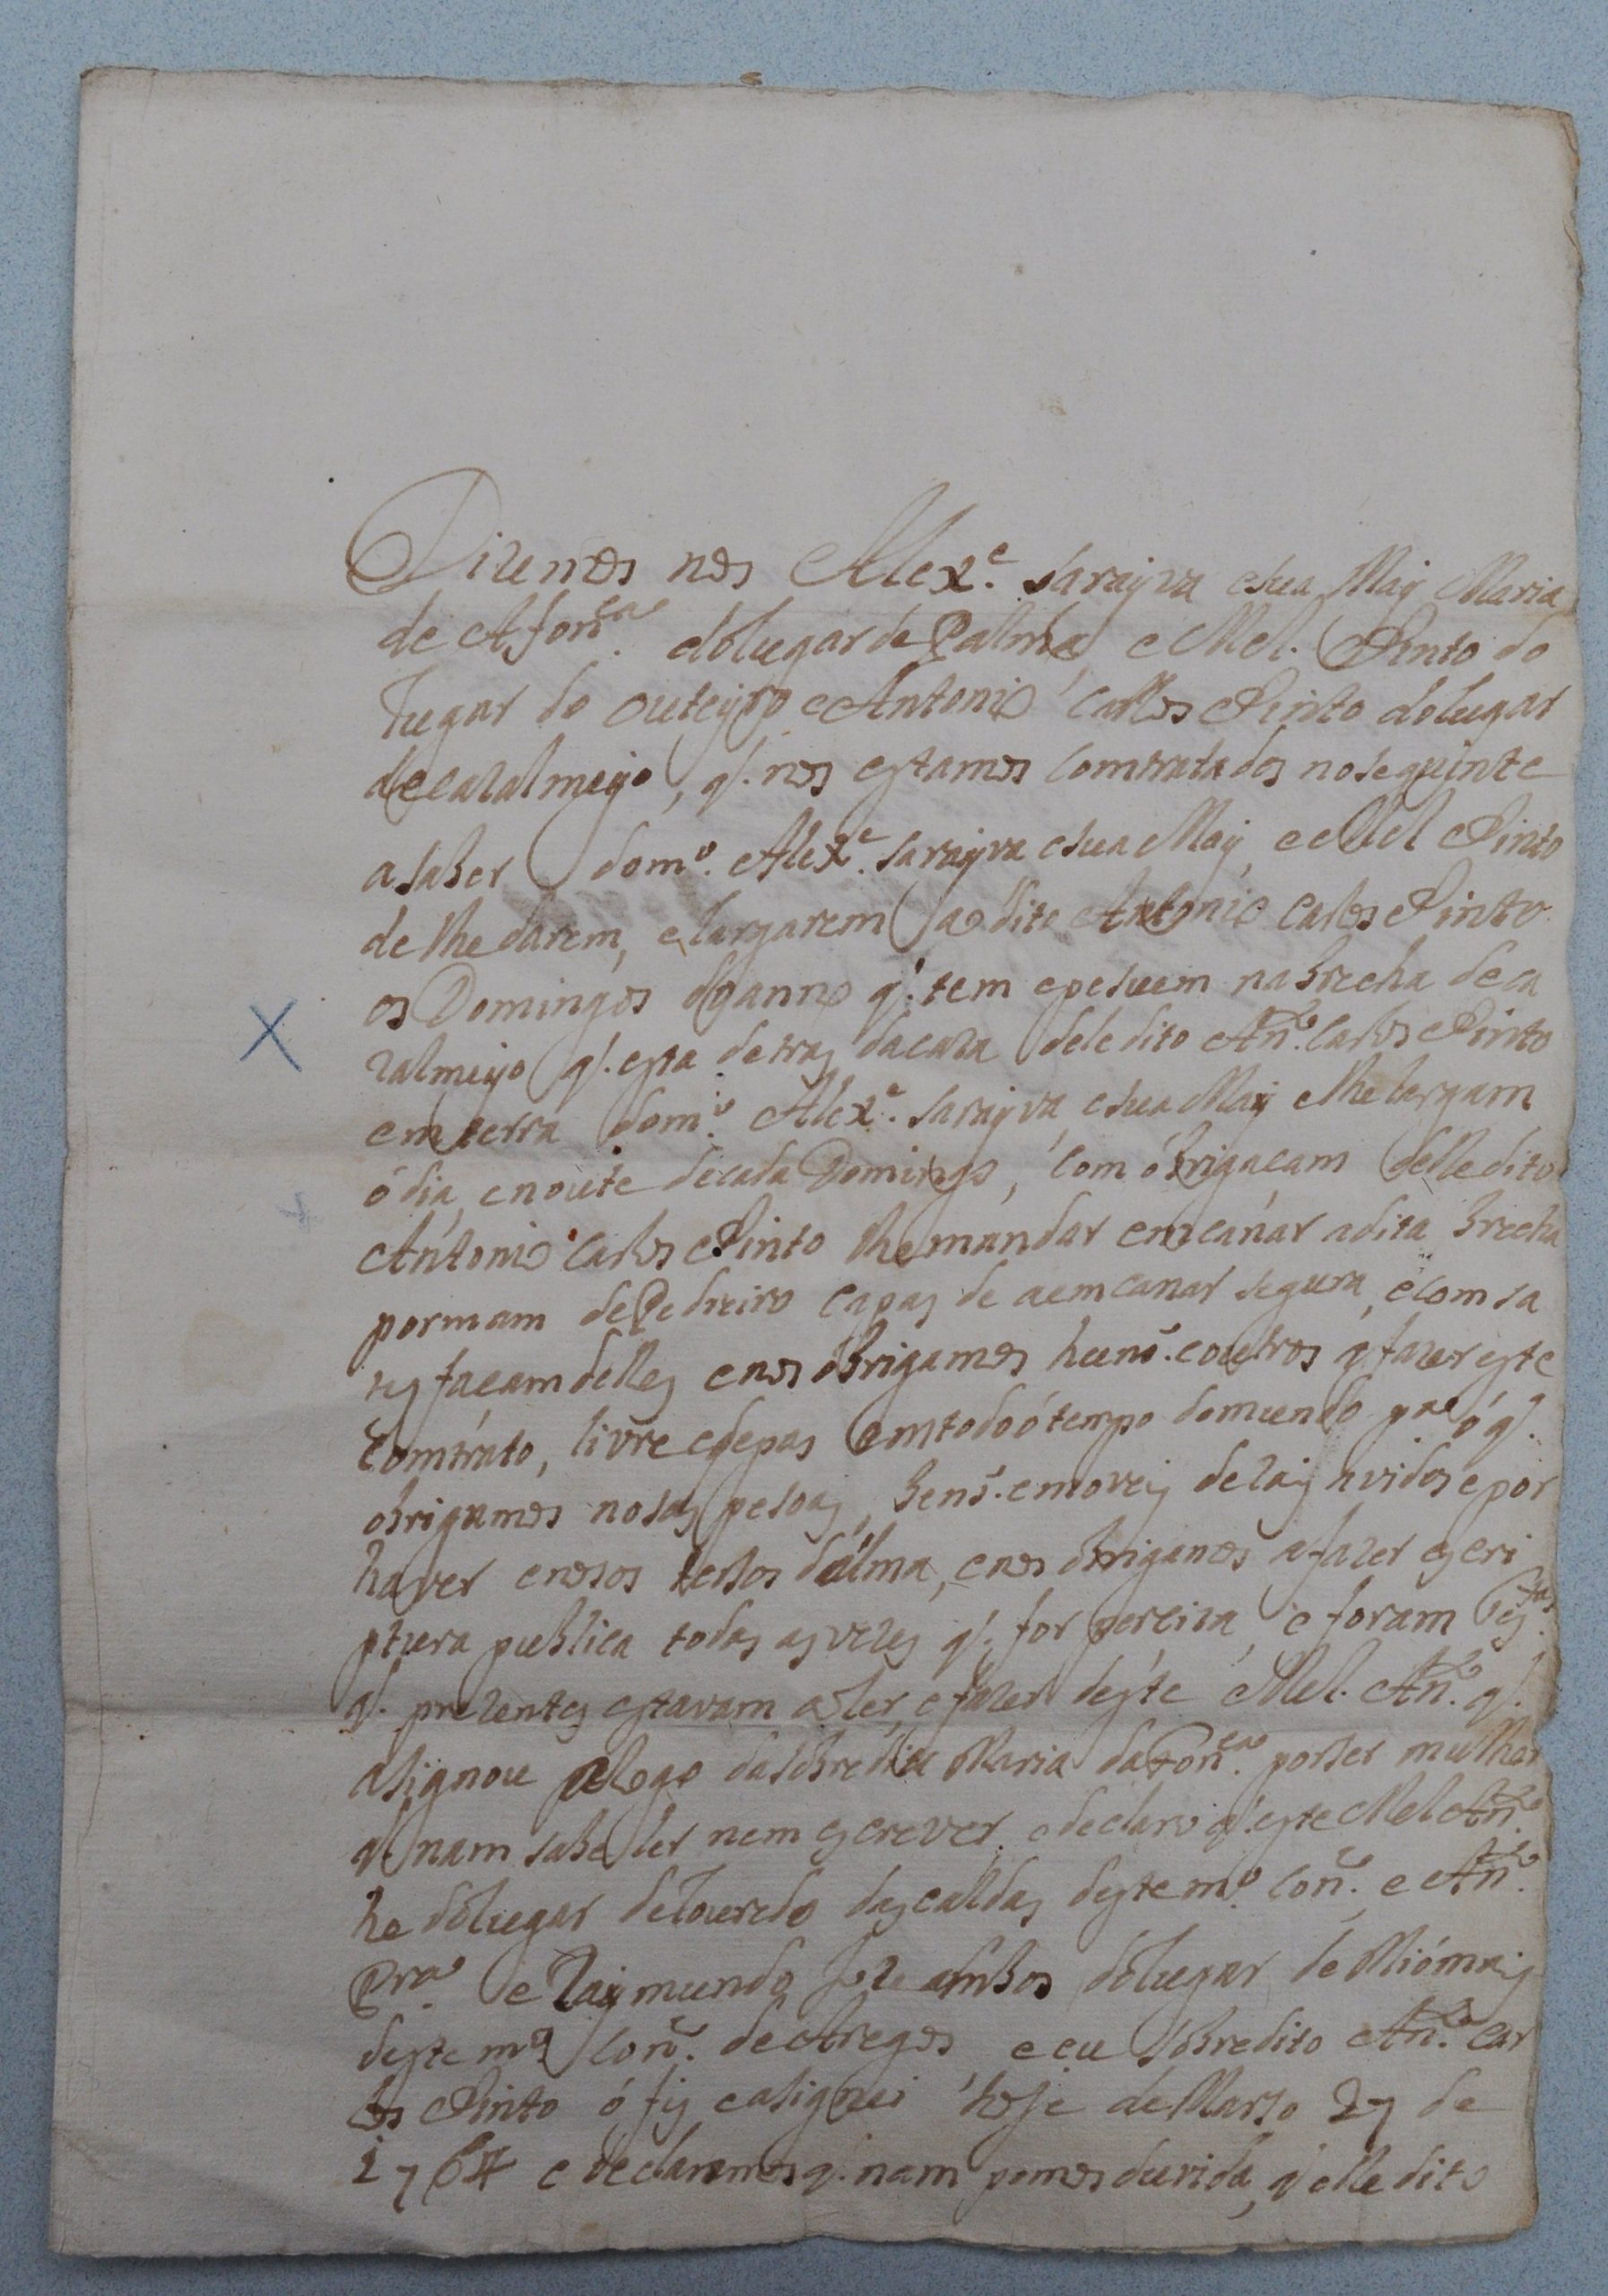 Dizemos nos Alex.e Sarayva e sua May Maria
de Afon.ca do lugar de Palma e Mel. Pinto do
lugar do outeyro e Antonio Carlos Pinto do lugar
de cazalmeyo, q. nos estamos comtratados no seguinte
a saber do m.o Alex.e Sarayva e sua May e Mel Pinto
de lhe darem, e largarem ao dito Antonio Carlos Pinto
os Domingos do anno q. tem e pesuem na brecha de ca
zalmeyo q. esta detras da caza dele dito An.o Carlos Pinto
em terra do m.o Alex.e Sarayva e sua May e lhe largam
ó dia, e noute de cada Domingo, com óbrigacam delle dito
Antonio Carlos Pinto lhe mandar emcanar a dita brecha
por mam de Pedreiro capas de a emcanar segura, e com sa
tes facam delles e nos obrigamos huns. e outros a fazer este
Comtrato, livre e de pas em todo ó tempo do mundo p.a ó q.
obrigamos nosas pesoas, bens. e moveis de rais avidos e por
haver e nosos tersos dálma, e nos obrigamos a fazer escri
ptura publica todas as vezes q. for perciza, e foram tes.tas
q. prezentes estavam a ler, e fazer deste Mel. An.o q.
asignou a Rogo da sobredita Maria da Fon.ca por ser mulher
q. nam sabe ler nem escrever e declaro q. este Mel An.o
he do lugar de Louredo das caldas deste m.o con.o e An.o
Pr.a e Raymundo Joze ambos do lugar de Miómais
deste m.o con.o de Aregos e eu sobredito An.o Car
los Pinto ó fis e asignei hoje de Marso 27 de
1764 e declaramos q. nam pomos duvida, q. elle dito